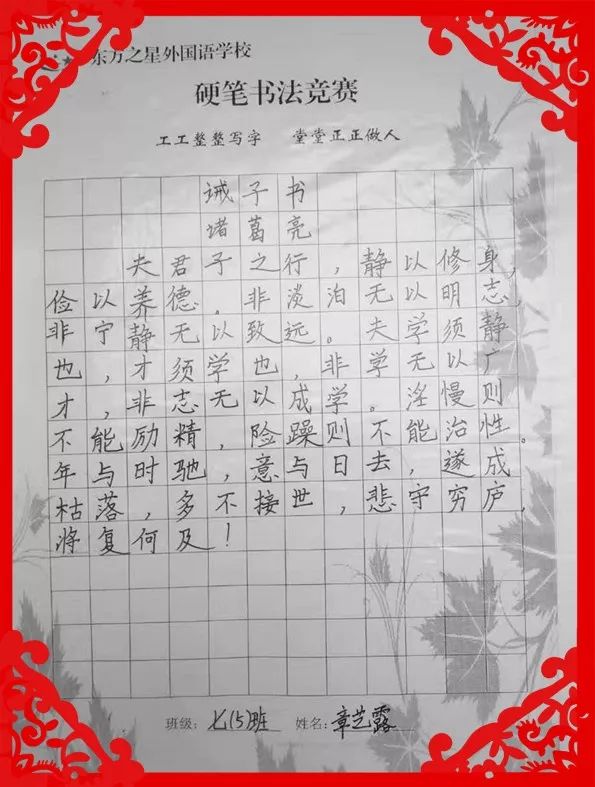 东方之星外国语学校
硬笔书法竞赛
工工整整写字 堂堂正正做人
诫子书
诸葛亮
夫君子之行，静以修身，
俭以养德。非淡泊无以明志，
非宁静无以致远。夫学须静
也，才须学也，非学无以广
才，非志无以成学。淫慢则
不能励精，险躁则不能治性。
年与时驰，意与日去，遂成
枯落，多不接世，悲守穷庐，
将复何及！
班级：七(5)班 姓名：章芝露